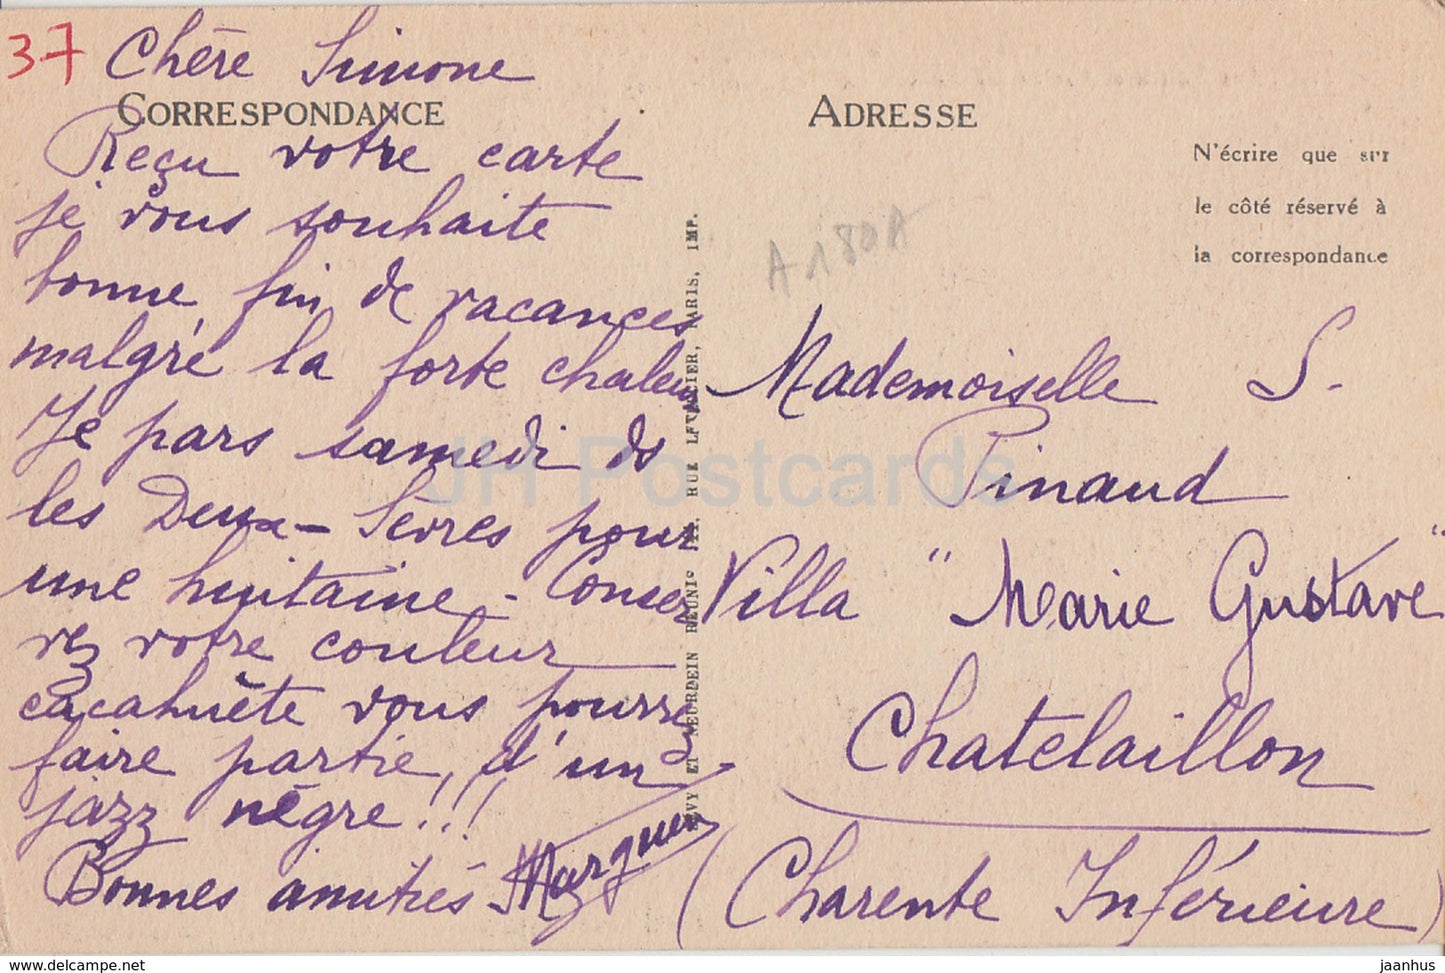 37 Chère Simone
CORRESPONDANCE
Reçu votre carte
je vous souhaite
bonne fin de vacances
malgré la forte chaleur
Je pars samedi ds
les Deux-Sèvres pour
une huitaine - Conser
vez votre couleur
cacahuète vous pourrez
faire partie d'un
jazz nègre!!!
Bonnes amitiés
LEVY ET NEURDEIN REUNIS, RUE LETELLIER, PARIS, IMP.
ADRESSE
N'écrire que sur
le côté réservé à
la correspondance
A180A
Mademoiselle S.
Pinaud
Villa "Marie Gustave"
Chatelaillon
(Charente Inférieure)
JH Postcards
https://www.delcampe.net
jaanhus